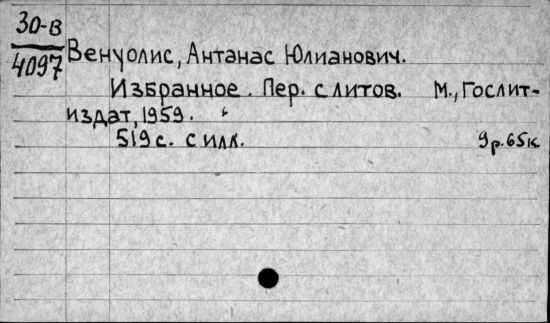 30-в
4097
Венуолис, Антанас Юлианович.
Избранное. Пер. с литов. М., Гослит-
издат, 1959.
519 с. с илл.
9р.65к